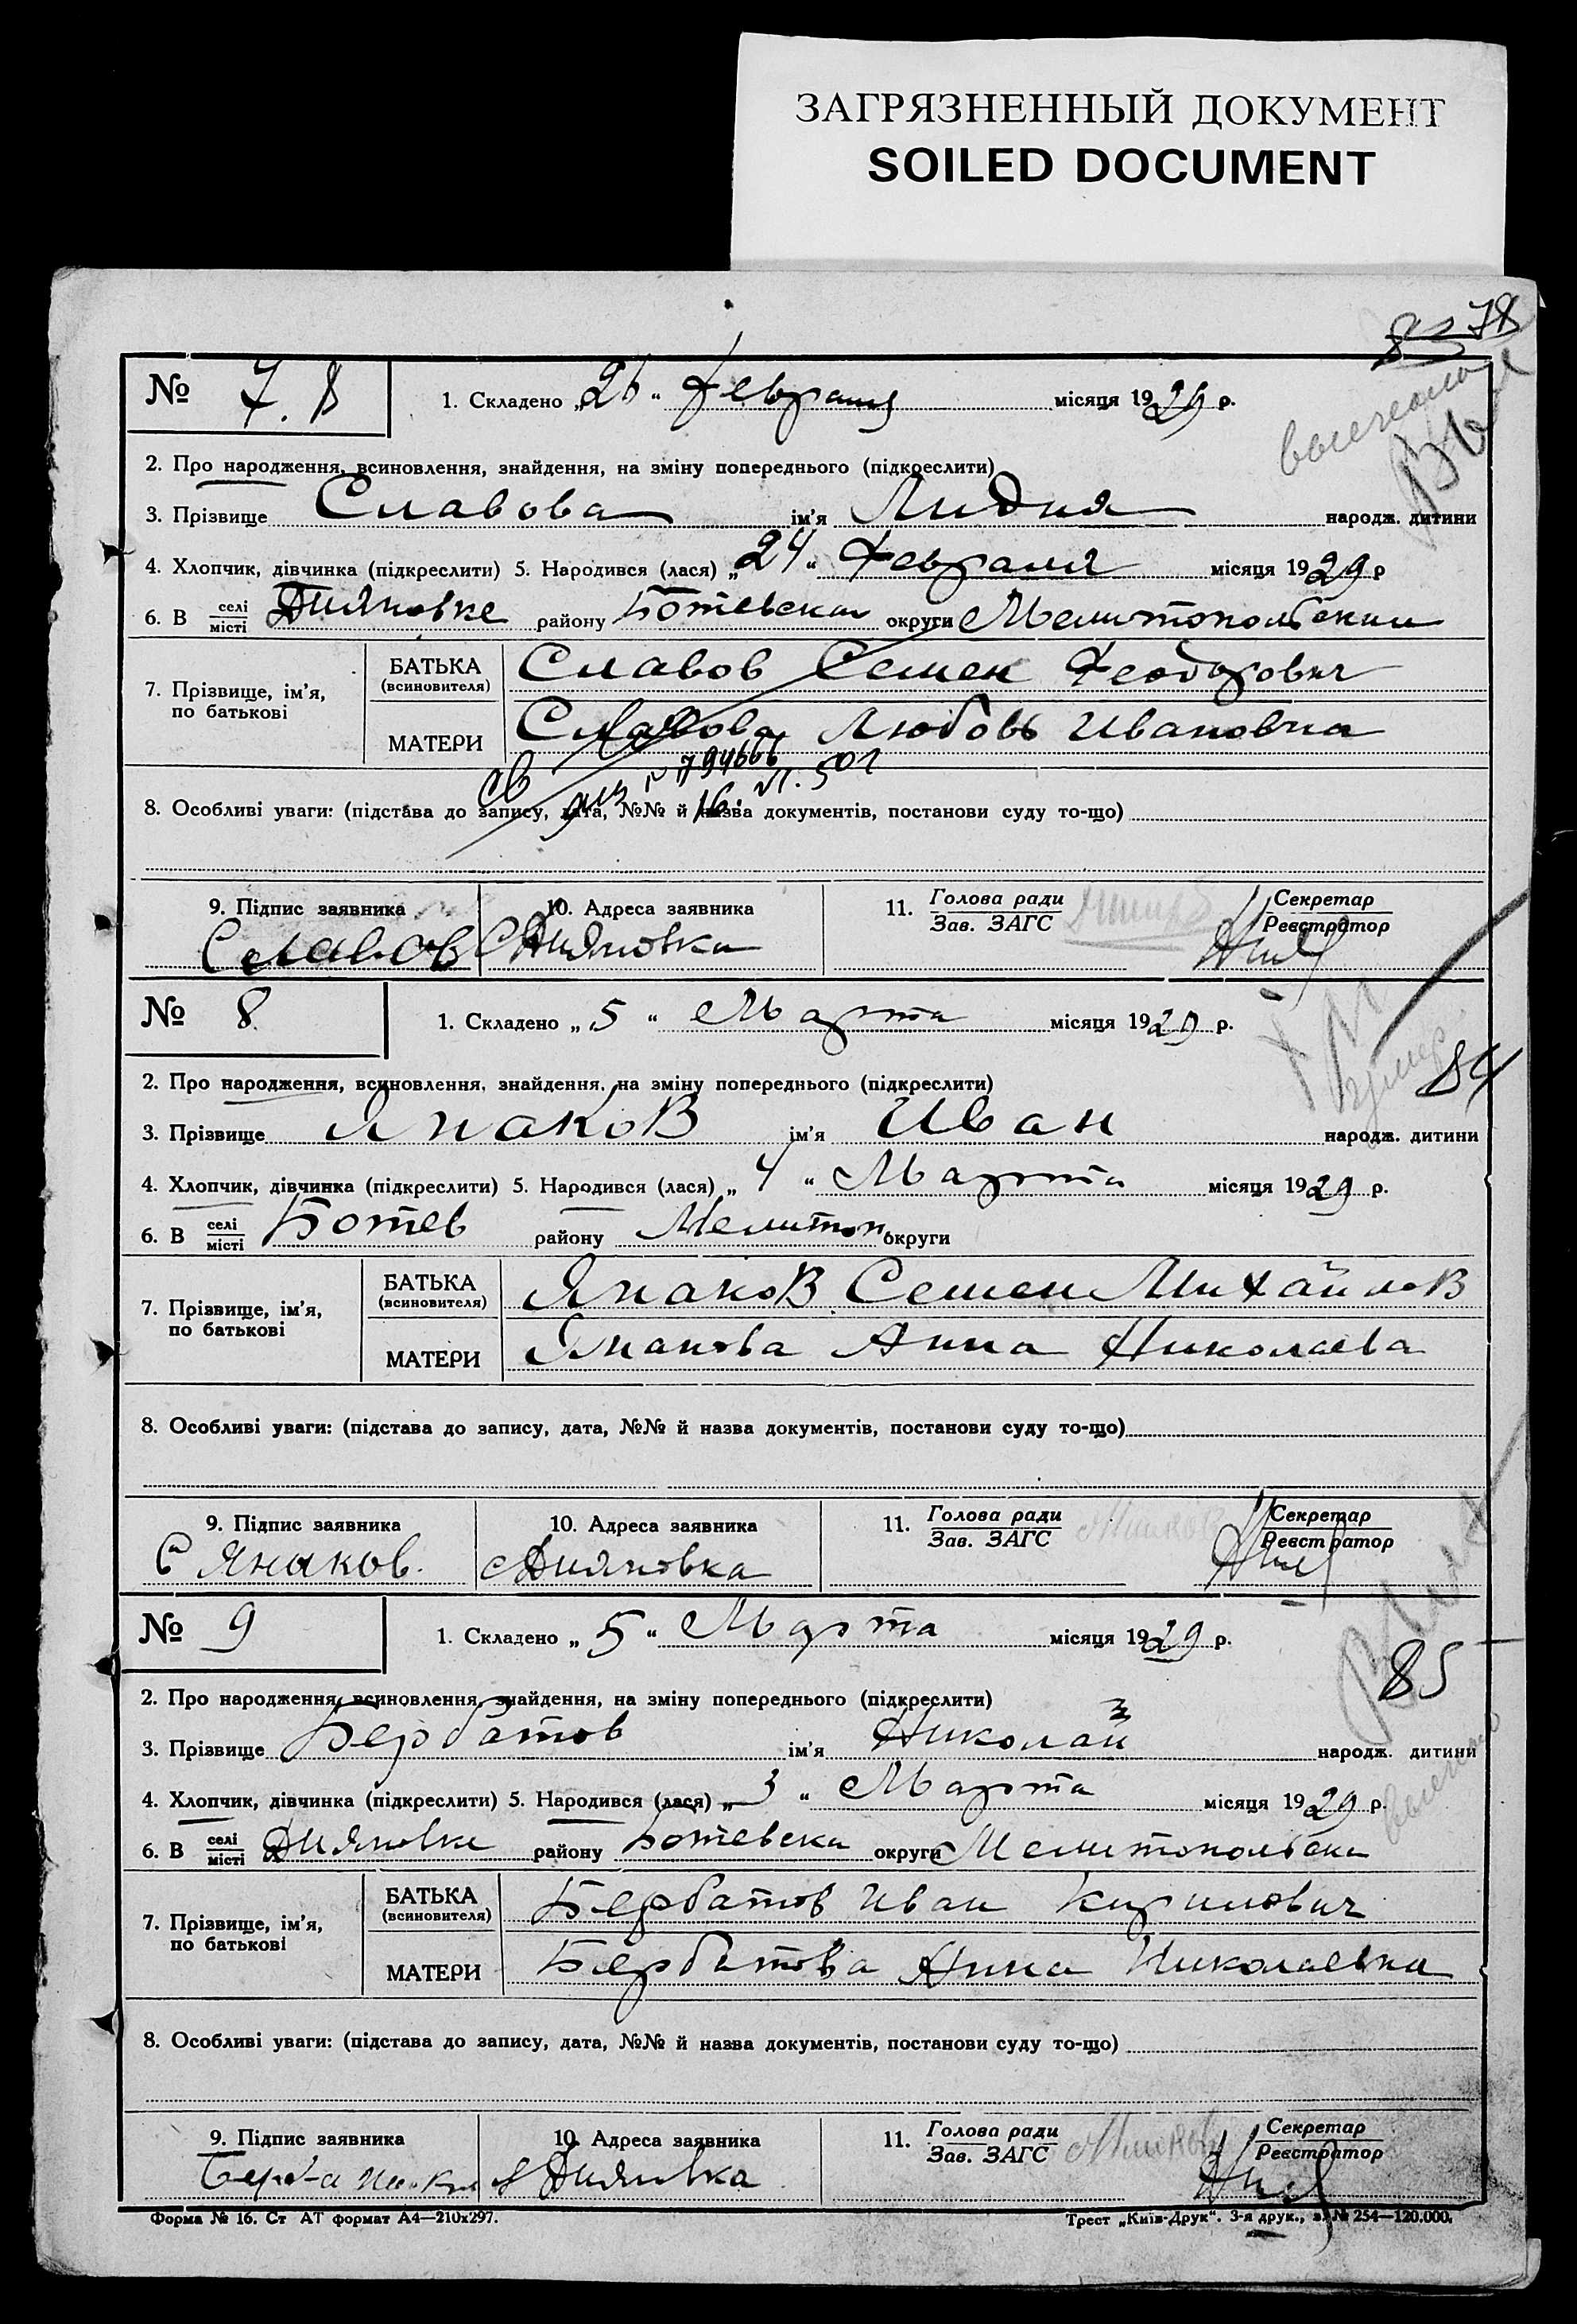 ЗАГРЯЗНЕННЫЙ ДОКУМЕНТ
SOILED DOCUMENT
78
№ 7. 1. Складено „26“ Февраля місяця 1929 р.
2. Про народження, всиновлення, знайдення, на зміну попереднього (підкреслити)
3. Прізвище Славова ім'я Лидия народж. дитини
4. Хлопчик, дівчинка (підкреслити) 5. Народився (лася) „24“ Февраля місяця 1929 р
6. В селі/місті Дияновке району Ботевская округи Мелитопольския
7. Прізвище, ім'я, по батькові
БАТЬКА (всиновителя) Славов Семен Феодорович
МАТЕРИ Славова Любовь Ивановна
св
794666
8. Особливі уваги: (підстава до запису, дата, №№ й назва документів, постанови суду то-що)
9. Підпис заявника 10. Адреса заявника 11. Голова ради/Зав. ЗАГС Секретар/Реєстратор
Славов С Дияновка
№ 8 1. Складено „5“ Марта місяця 1929 р.
84
2. Про народження, всиновлення, знайдення, на зміну попереднього (підкреслити)
3. Прізвище Янаков ім'я Иван народж. дитини
4. Хлопчик, дівчинка (підкреслити) 5. Народився (лася) „4“ Марта місяця 1929 р.
6. В селі/місті Ботев району Мелитоп округи
7. Прізвище, ім'я, по батькові
БАТЬКА (всиновителя) Янаков Семен Михайлов
МАТЕРИ Янакова Анна Николаева
8. Особливі уваги: (підстава до запису, дата, №№ й назва документів, постанови суду то-що)
9. Підпис заявника 10. Адреса заявника 11. Голова ради/Зав. ЗАГС Секретар/Реєстратор
С Янаков. с Дияновка
№ 9 1. Складено „5“ Марта місяця 1929 р.
85
2. Про народження, всиновлення, знайдення, на зміну попереднього (підкреслити)
3. Прізвище Бербатов ім'я Николай народж. дитини
4. Хлопчик, дівчинка (підкреслити) 5. Народився (лася) „3“ Марта місяця 1929 р.
6. В селі/місті Дияновки району Ботевска округи Мелитопольска
7. Прізвище, ім'я, по батькові
БАТЬКА (всиновителя) Бербатов Иван Кирилович
МАТЕРИ Бербатова Анна Николаевна
8. Особливі уваги: (підстава до запису, дата, №№ й назва документів, постанови суду то-що)
9. Підпис заявника 10. Адреса заявника 11. Голова ради/Зав. ЗАГС Секретар/Реєстратор
с Дияновка
Форма № 16. Ст АТ формат А4—210х297. Трест „Київ-Друк“. 3-я друк., з. № 254—120.000.